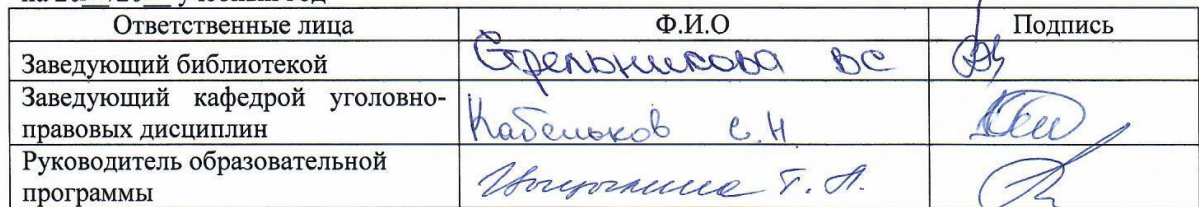 на 20__/20__ учебный год
Ответственные лица Ф.И.О Подпись
Заведующий библиотекой Стрельникова ВС
Заведующий кафедрой уголовно-
правовых дисциплин Кабельков С.Н
Руководитель образовательной
программы Т.А.